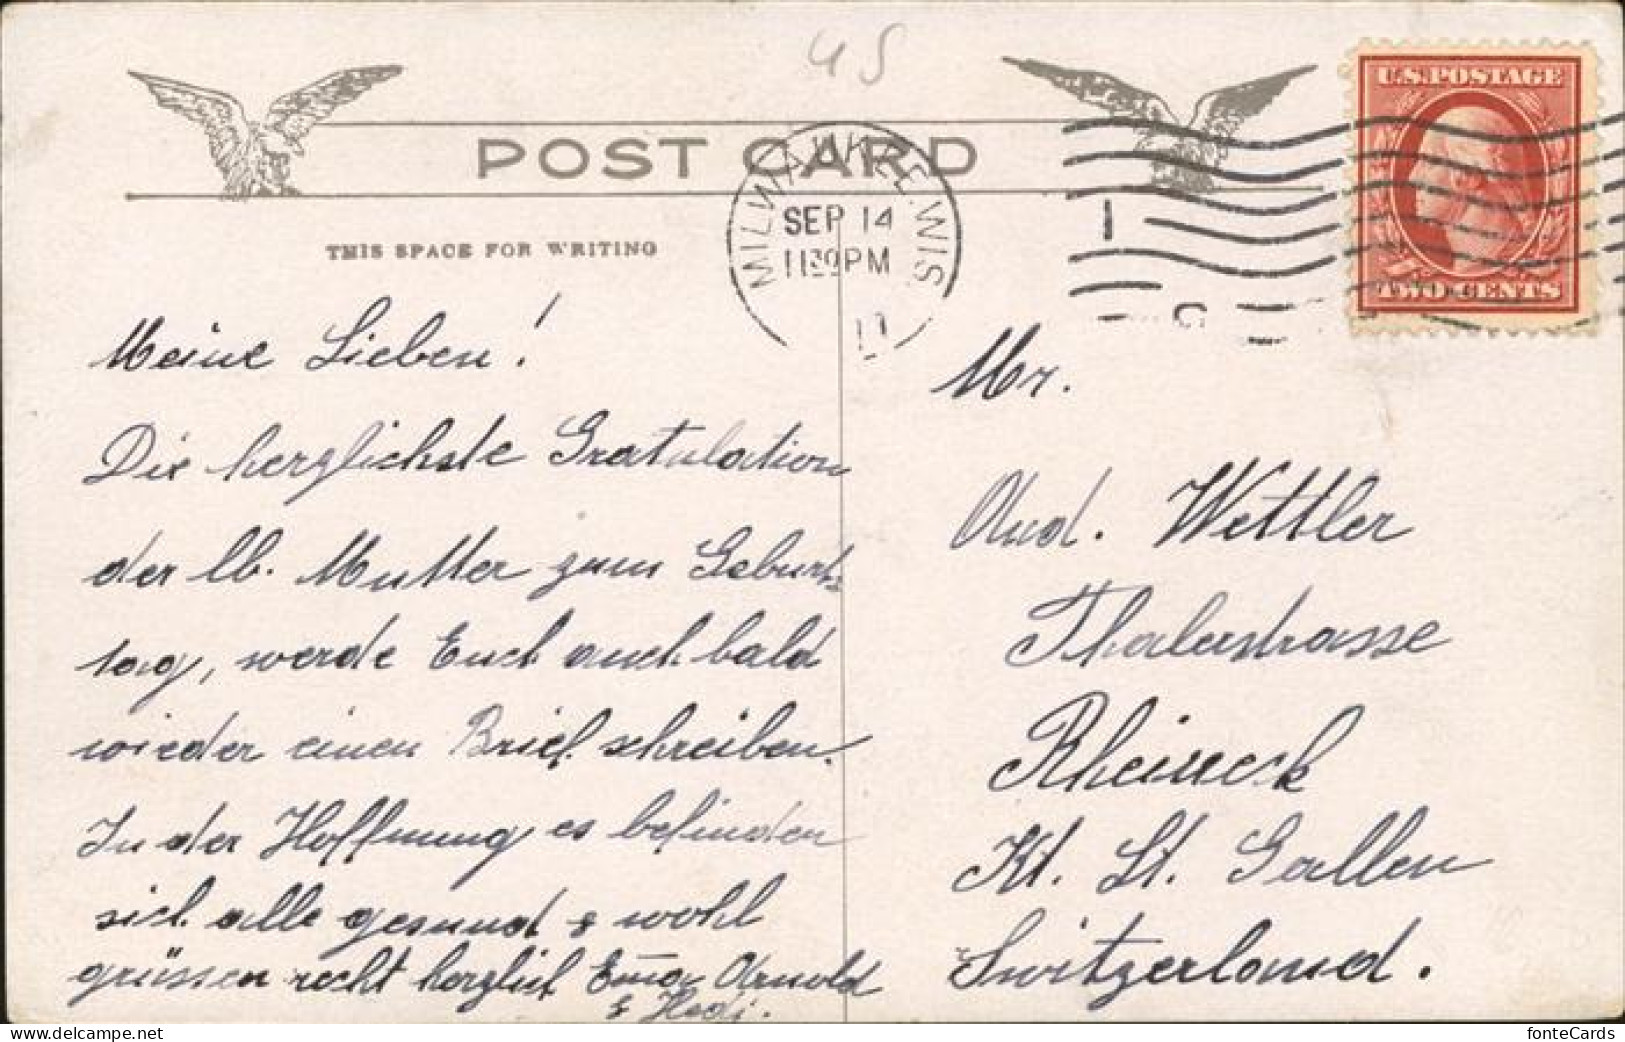 US
POST CARD
THIS SPACE FOR WRITING
MILWAUKEE, WIS.
SEP 14
11 30 PM
11
1
C
U.S. POSTAGE
TWO CENTS
Meine Lieben!
Die herzlichste Gratulation
der lb. Mutter zum Geburts
tag, werde Euch auch bald
wieder einen Brief schreiben.
In der Hoffnung es befinden
sich alle gesund & wohl
grüssen recht herzlich Emma Arnold
& Hedi.
Mr.
Aud. Wettler
Thalerstrasse
Rheineck
Kt. St. Gallen
Switzerland.
fonteCards